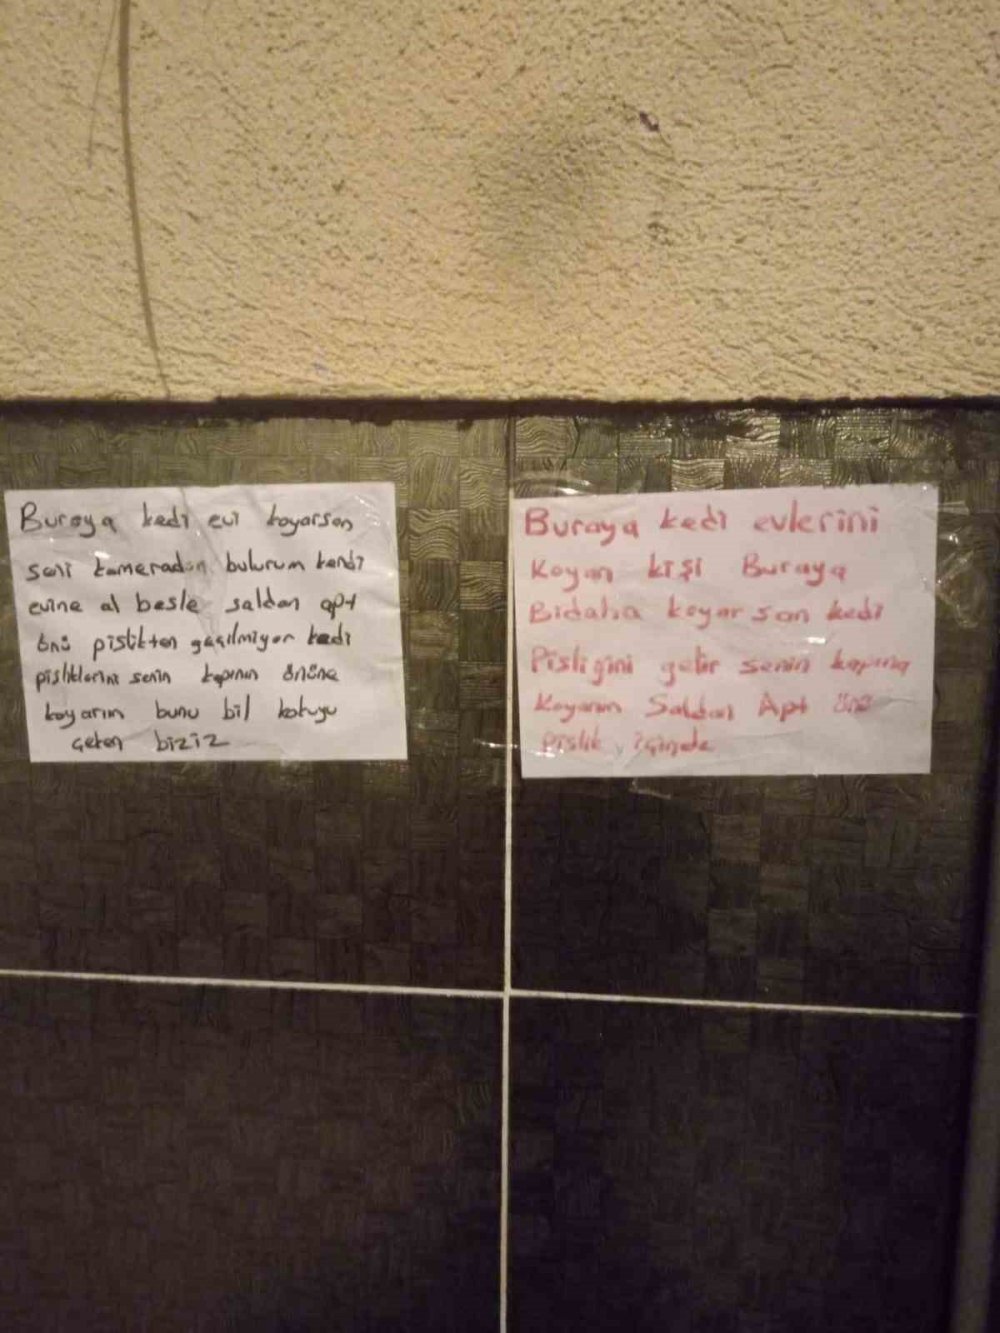 Buraya kedi evi koyarsan
seni kameradan bulurum kendi
evine al besle saldan apt
önü pislikten geçilmiyor kedi
pisliklerini senin kapının önüne
koyarım bunu bil kokuyu
çeken biziz
Buraya kedi evlerini
Koyan kişi Buraya
Bidaha koyarsan kedi
Pisligini getir senin kapına
Koyarım Saldan Apt önü
pislik içinde